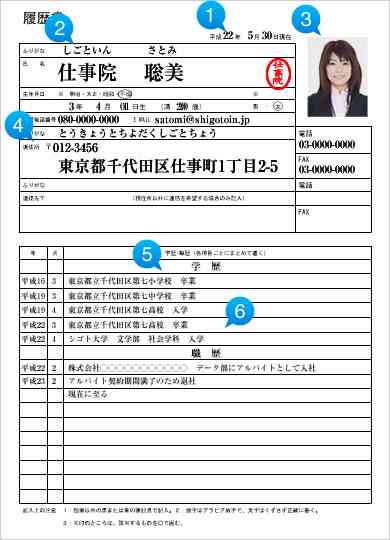 履歴書
1
平成22年 5月30日現在
2
3
ふりがな しごといん さとみ
氏名 仕事院 聡美
仕事院
生年月日 明治・大正・昭和・平成
3年 4月 01日生 (満 20歳) 男・女
携帯電話番号 080-0000-0000 E-MAIL satomi@shigotoin.jp
4
ふりがな とうきょうとちよだくしごとちょう
電話
現住所 〒012-3456
03-0000-0000
東京都千代田区仕事町1丁目2-5
FAX
03-0000-0000
ふりがな
電話
連絡先 〒 (現住所以外に連絡を希望する場合のみ記入)
FAX
5
年 月 学歴・職歴(各項目ごとにまとめて書く)
学 歴
平成16 3 東京都立千代田区第七小学校 卒業
平成19 3 東京都立千代田区第七中学校 卒業
平成19 4 東京都立千代田区第七高校 入学
6
平成22 3 東京都立千代田区第七高校 卒業
平成22 4 シゴト大学 文学部 社会学科 入学
職 歴
平成22 2 株式会社〇〇〇〇〇〇〇〇〇〇 データ部にアルバイトとして入社
平成23 2 アルバイト契約期間満了のため退社
現在に至る
記入上の注意 1.鉛筆以外の黒または青の筆記具で記入。2.数字はアラビア数字で、文字はくずさず正確に書く。
3.※印のところは、該当するものを〇で囲む。